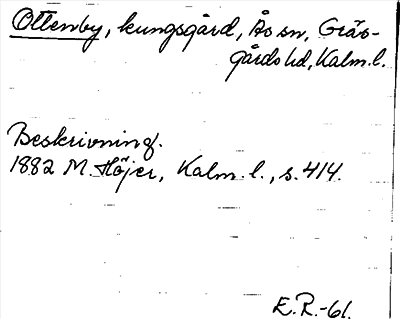 Ottenby, kungsgård, Ås sn, Gräs-
gårds hd, Kalm. l.
Beskrivning.
1882 M. Höjer, Kalm. l., s. 414.
E.R.-61.